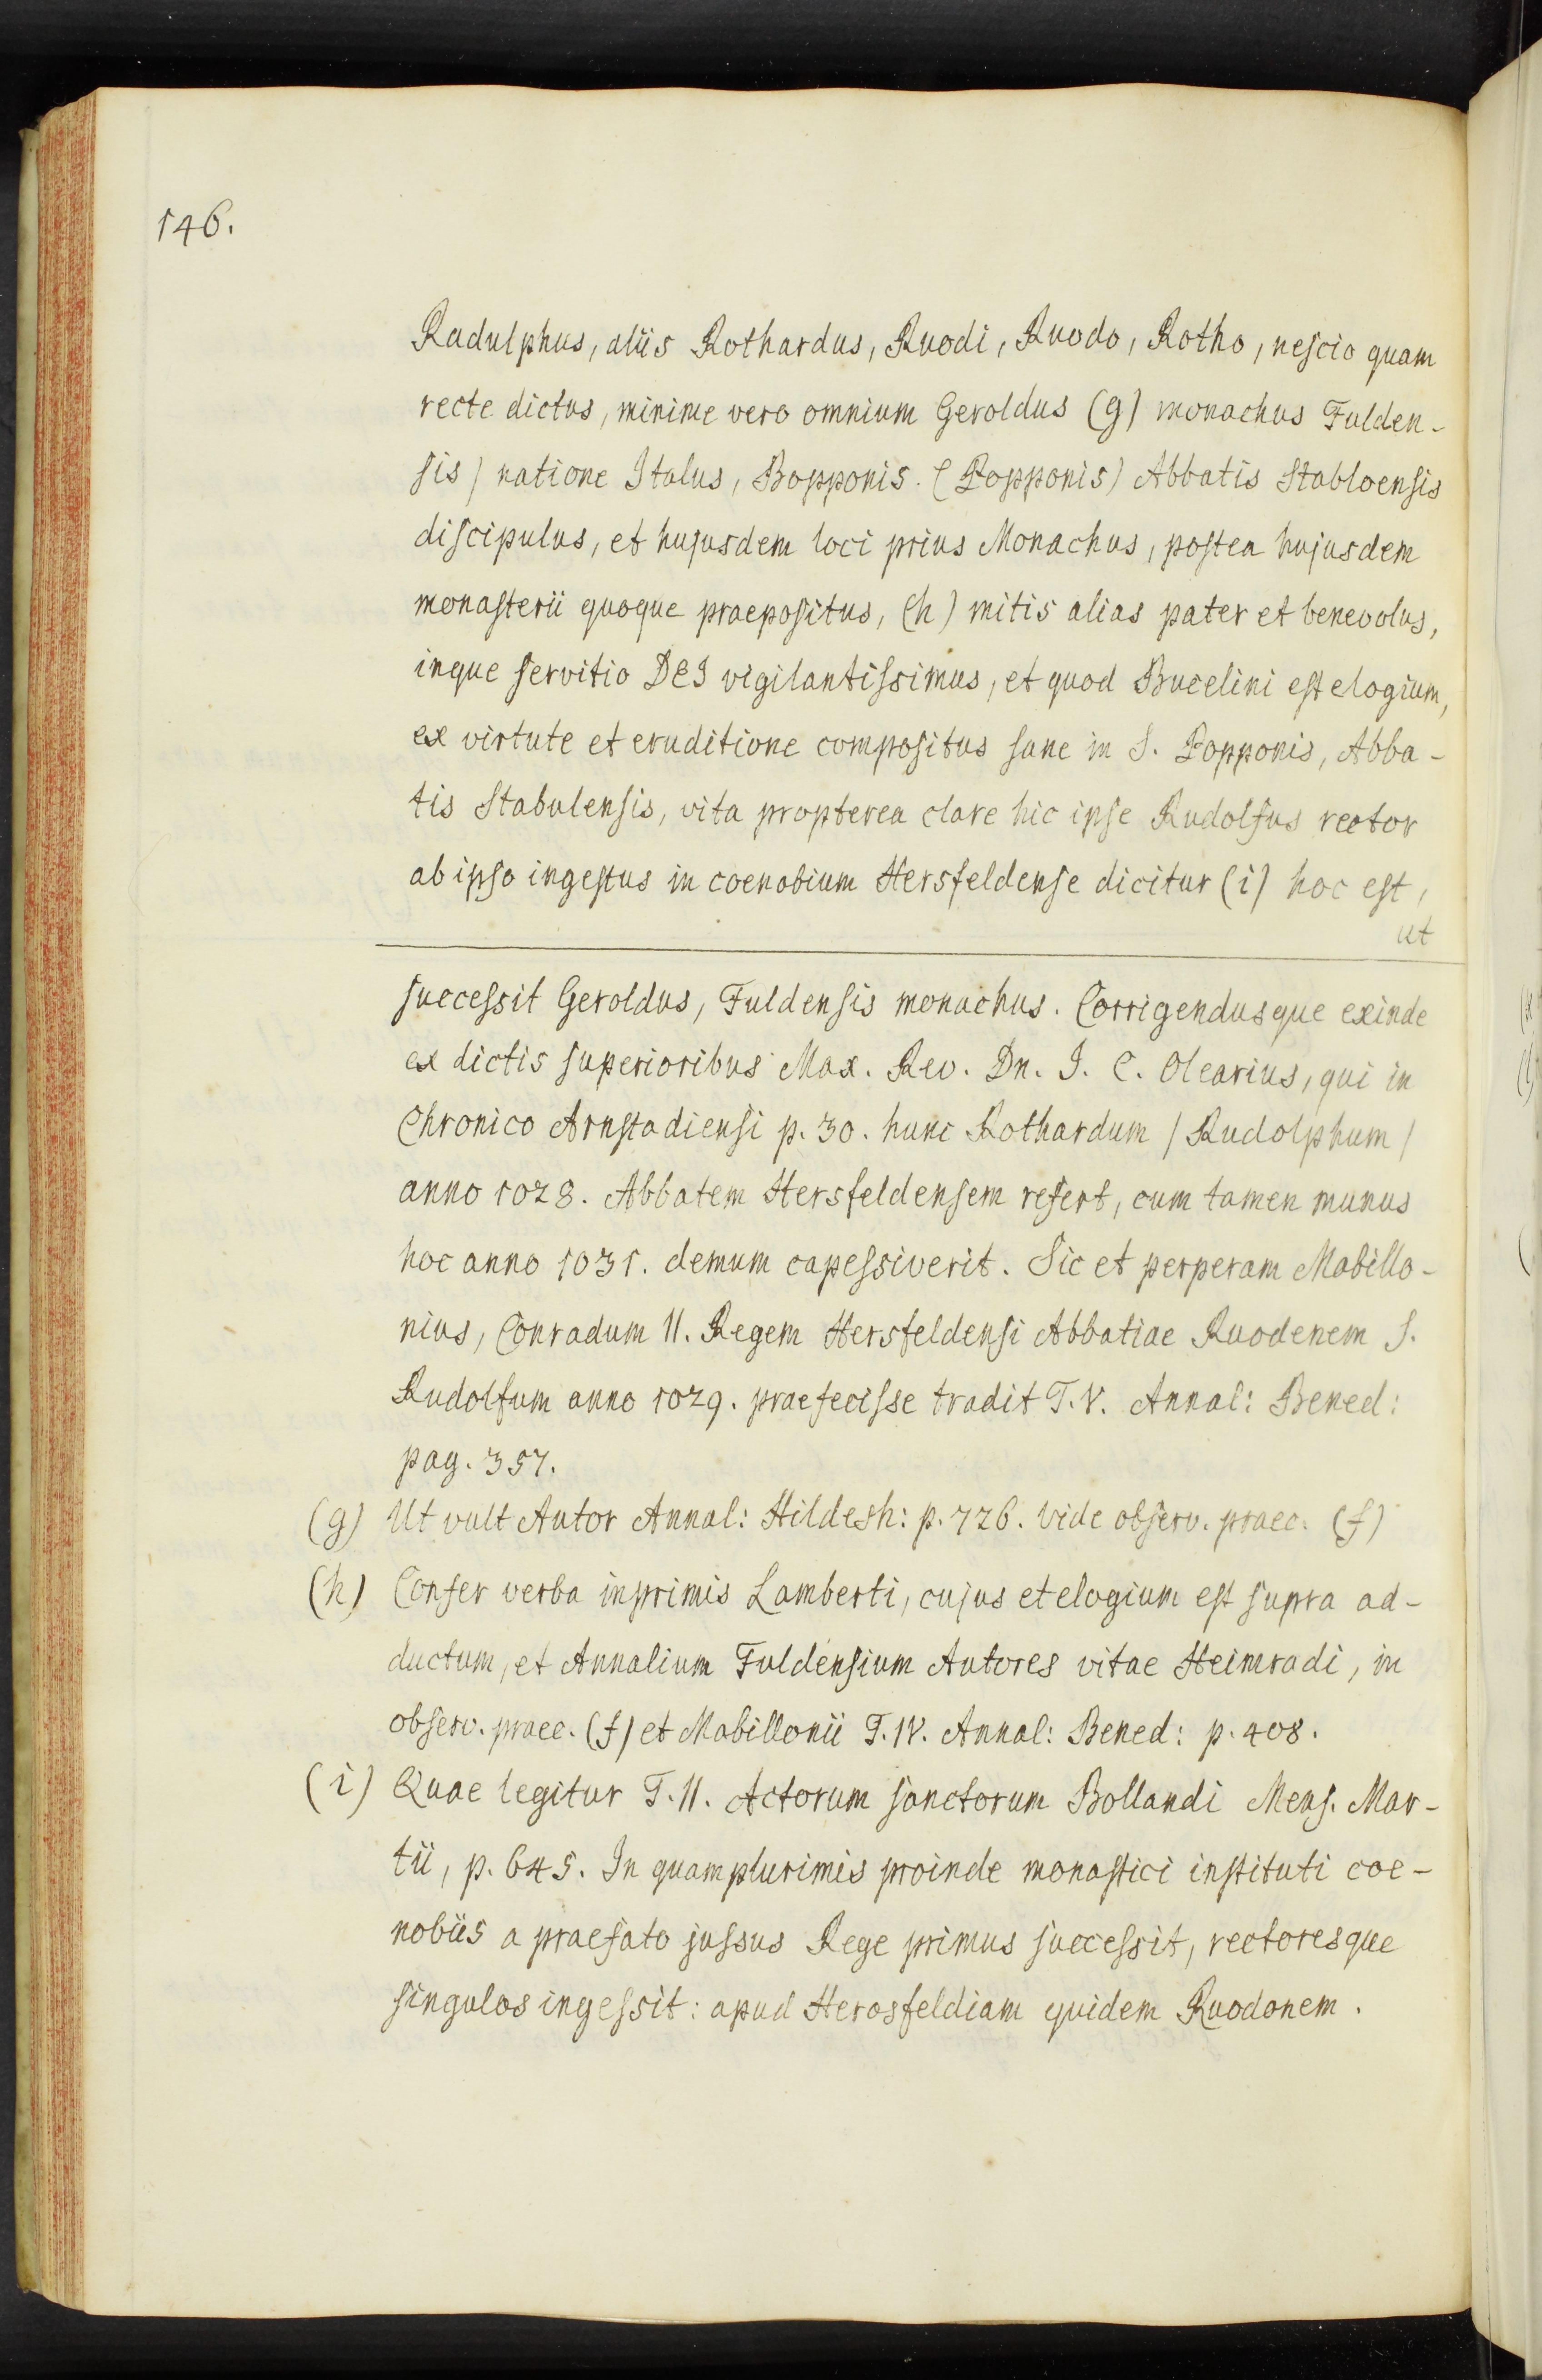 146.
Radulphus, aliis Rothardus, Ruodi, Ruodo, Rotho, nescio quam
recte dictus, minime vero omnium Geroldus (g) monachus Fulden-
sis) natione Italus, Bopponis. (Popponis) Abbatis Stabloensis
discipulus, et hujusdem loci prius Monachus, postea hujusdem
monasterii quoque praepositus, (h) mitis alias pater et benevolus,
inque servitio DEI vigilantissimus, et quod Bucelini est elogium,
ex virtute et eruditione compositus sane in S. Popponis, Abba-
tis Stabulensis, vita propterea clare hic ipse Rudolfus rector
ab ipso ingestus in coenobium Hersfeldense dicitur (i) hoc est,
ut
successit Geroldus, Fuldensis monachus. Corrigendusque exinde
ex dictis superioribus Max. Rev. Dn. J. C. Olearius, qui in
Chronico Arnstadiensi p. 30. hunc Rothardum / Rudolphum /
anno 1028. Abbatem Hersfeldensem refert, cum tamen munus
hoc anno 1031. demum capessiverit. Sic et perperam Mabillo-
nius, Conradum II. Regem Hersfeldensi Abbatiae Ruodenem S.
Rudolfum anno 1029. praefecisse tradit T.V. Annal: Bened:
pag. 357.
(g) Ut vult Autor Annal: Hildesh: p. 726. vide observ. praec. (f)
(h) Confer verba inprimis Lamberti, cujus et elogium est supra ad-
ductum, et Annalium Fuldensium Autores vitae Heimradi, in
observ. praec. (f) et Mabillonii T.IV. Annal: Bened: p. 408.
(i) Quae legitur T.II. Actorum sanctorum Bollandi Mens. Mar-
tii, p. 645. In quamplurimis proinde monastici instituti coe-
nobiis a praefato jussus Rege primus successit, rectoresque
singulos ingessit: apud Herosfeldiam quidem Ruodonem.